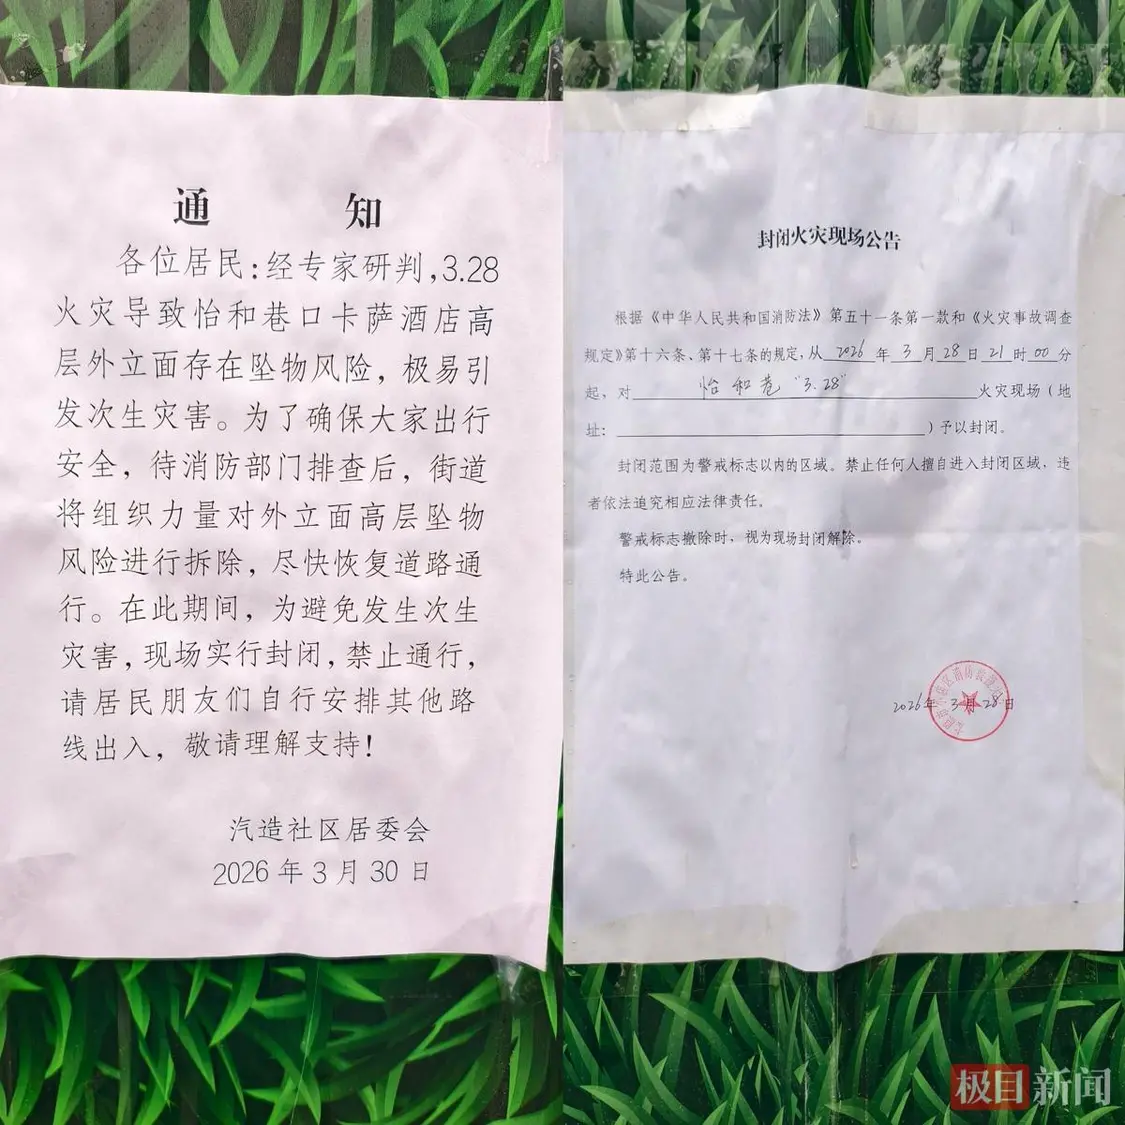 通 知
各位居民:经专家研判,3.28
火灾导致怡和巷口卡萨酒店高
层外立面存在坠物风险,极易引
发次生灾害。为了确保大家出行
安全,待消防部门排查后,街道
将组织力量对外立面高层坠物
风险进行拆除,尽快恢复道路通
行。在此期间,为避免发生次生
灾害,现场实行封闭,禁止通行,
请居民朋友们自行安排其他路
线出入,敬请理解支持!
汽造社区居委会
2026年3月30日
封闭火灾现场公告
根据《中华人民共和国消防法》第五十一条第一款和《火灾事故调查
规定》第十六条、第十七条的规定,从 2026 年 3 月 28 日 21 时 00 分
起、对 怡和巷"3.28" 火灾现场(地
址: )予以封闭。
封闭范围为警戒标志以内的区域。禁止任何人擅自进入封闭区域,违
者依法追究相应法律责任。
警戒标志撤除时,视为现场封闭解除。
特此公告。
2026年 3月 28日
极目新闻